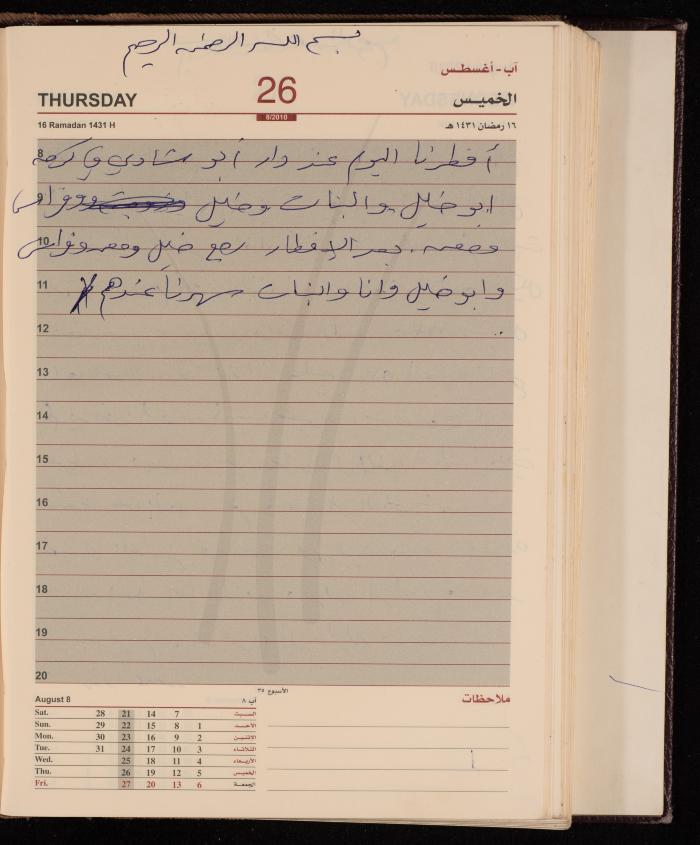 بسم الله الرحمن الرحيم
آب - أغسطس
THURSDAY 26 الخميس
8/2010
16 Ramadan 1431 H ١٦ رمضان ١٤٣١ هـ
8 أفطرنا اليوم عند دار أبو شادي
9 ابو خليل والبنات وخليل
10 بعد الإفطار خليل
11 وابو خليل وانا والبنات سهرنا عندهم
12
13
14
15
16
17
18
19
20
الأسبوع ٣٥
August 8 آب ٨ ملاحظات
Sat. 28 21 14 7 السبت
Sun. 29 22 15 8 1 الاحد
Mon. 30 23 16 9 2 الاثنين
Tue. 31 24 17 10 3 الثلاثاء
Wed. 25 18 11 4 الأربعاء
Thu. 26 19 12 5 الخميس
Fri. 27 20 13 6 الجمعة